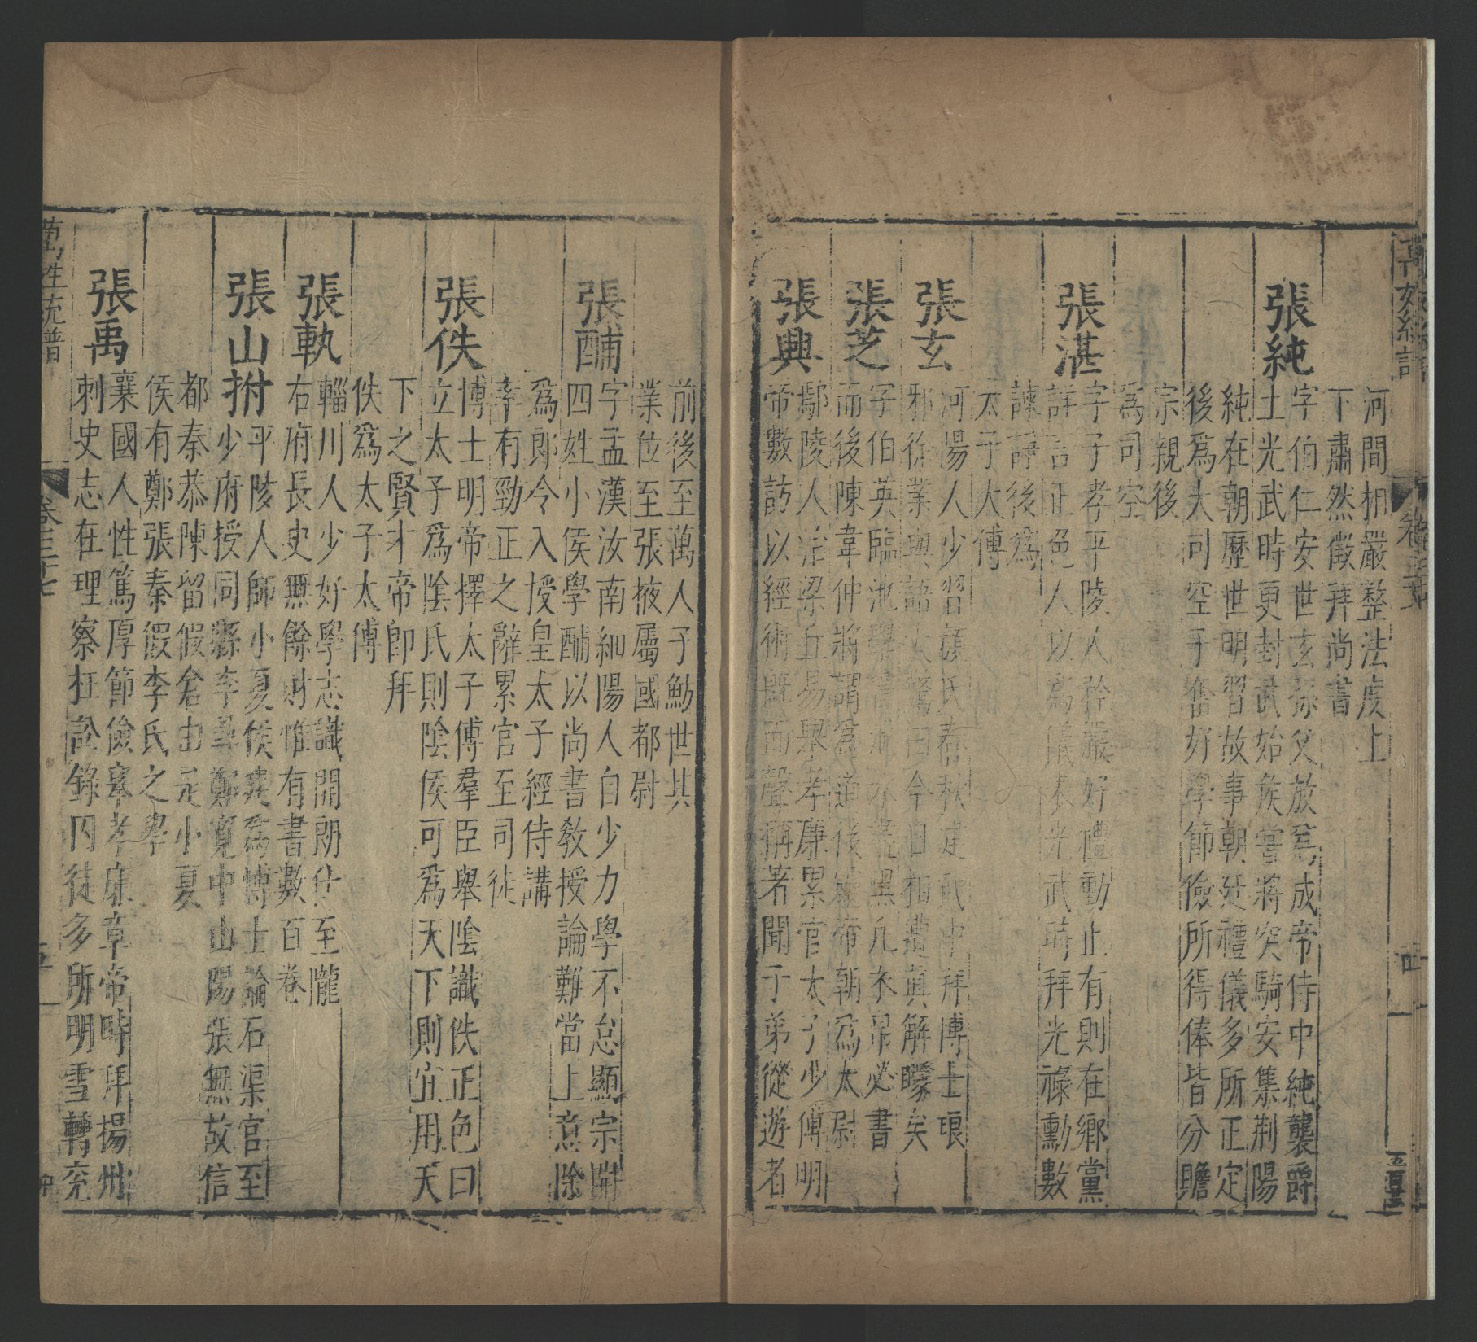 萬姓統譜 卷三十七 四
河間相嚴整法度上
下肅然徵拜尚書
張純 字伯仁安世玄孫父放爲成帝侍中純襲爵
土光武時更封武始侯嘗將突騎安集荆陽
純在朝歷世明習故事朝廷禮儀多所正定
後爲大司空 好學節儉所得俸皆分贍
宗親後
爲司空
張湛 字子孝平陵人矜嚴好禮動止有則在鄉黨
詳言正色人以爲儀表光武時拜光祿勳數
諫諍後爲
太子太傅
張玄 河陽人少習顏氏春秋建武中拜博士琅
邪徐業與語大驚曰今日相遭真解矇矣
張芝 字伯英臨池學書池水盡黑凡衣帛必書
而後陳韋仲將謂爲 帝朝爲太尉
張興 鄢陵人治梁丘易舉孝廉累官太子少傅明
帝數訪以經術旣而聲稱著聞于弟從遊者
前後至萬人子魴世其
業位至張掖屬國都尉
張酺 字孟漢汝南細陽人自少力學不怠顯宗開
四姓小侯學酺以尚書敎授論難當上意除
爲郎令入授皇太子經侍講
幸有勁正之辭累官至司徒
張佚 博士明帝擇太子傅羣臣舉陰識佚正色曰
立太子爲陰氏則陰侯可爲天下則宜用天
下之賢才帝卽拜
佚爲太子太傅
張執 輜川人少好學志識開朗仕至隴
右府長史無餘財惟有書數百卷
張山拊 平陵人師小夏侯建爲博士論石渠官至
少府授同縣李尋鄭寬中山陽張無故信
都秦恭陳留假倉由是小夏
侯有鄭張秦假李氏之學
張禹 襄國人性篤厚節儉舉孝廉章帝時拜揚州
刺史志在理察枉訟錄囚徒多所明雪轉兗
萬姓統譜 卷三十七 五